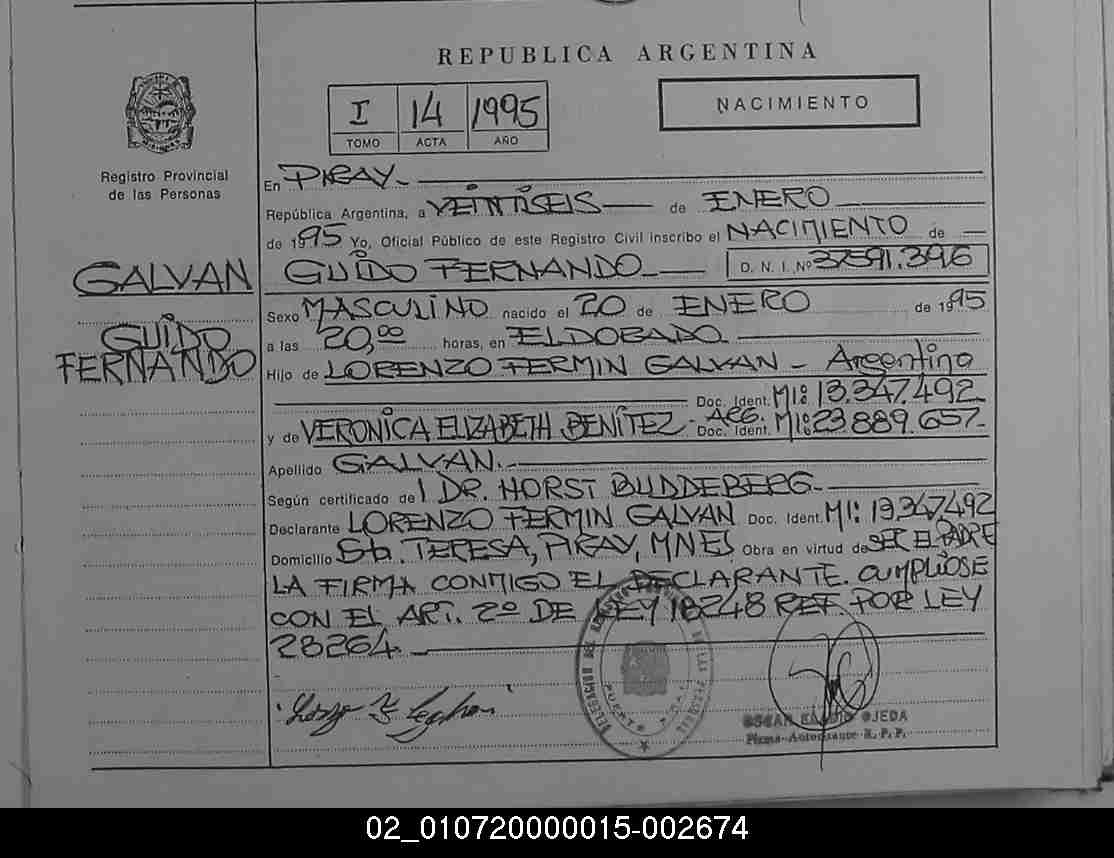 REPUBLICA ARGENTINA
I 14 1995
TOMO ACTA AÑO
NACIMIENTO
Registro Provincial
de las Personas
GALVAN
GUIDO
FERNANDO
En PIRAY.
República Argentina, a VEINTISEIS de ENERO
de 1995 Yo, Oficial Público de este Registro Civil inscribo el NACIMIENTO de
GUIDO FERNANDO D. N. I. Nº 37591.396
Sexo MASCULINO nacido el 20 de ENERO de 1995
a las 20,00 horas, en ELDORADO.
Hijo de LORENZO FERMIN GALVAN - Argentino
Doc. Ident. MI: 13.347.492
y de VERONICA ELIZABETH BENÍTEZ - ARG. Doc. Ident. MI: 23.889.657-
Apellido GALVAN.-
Según certificado de l DR. HORST BUDDEBERG.
Declarante LORENZO FERMIN GALVAN Doc. Ident. MI: 13.347492
Domicilio Sta. TERESA, PIRAY, MNES Obra en virtud de SER EL PADRE
LA FIRMA CONMIGO EL DECLARANTE. CUMPLIÓSE
CON EL ART. 2º DE LEY 18248 REF. POR LEY
23264.
DELEGACION DEL REGISTRO DE LAS PERSONAS
PUERTO PIRAY
OSCAR OJEDA
Firma Autorizante R. P. P.
02_010720000015-002674